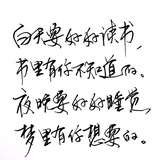 白天要好好读书，
书里有你不知道的。
夜晚要好好睡觉，
梦里有你想要的。